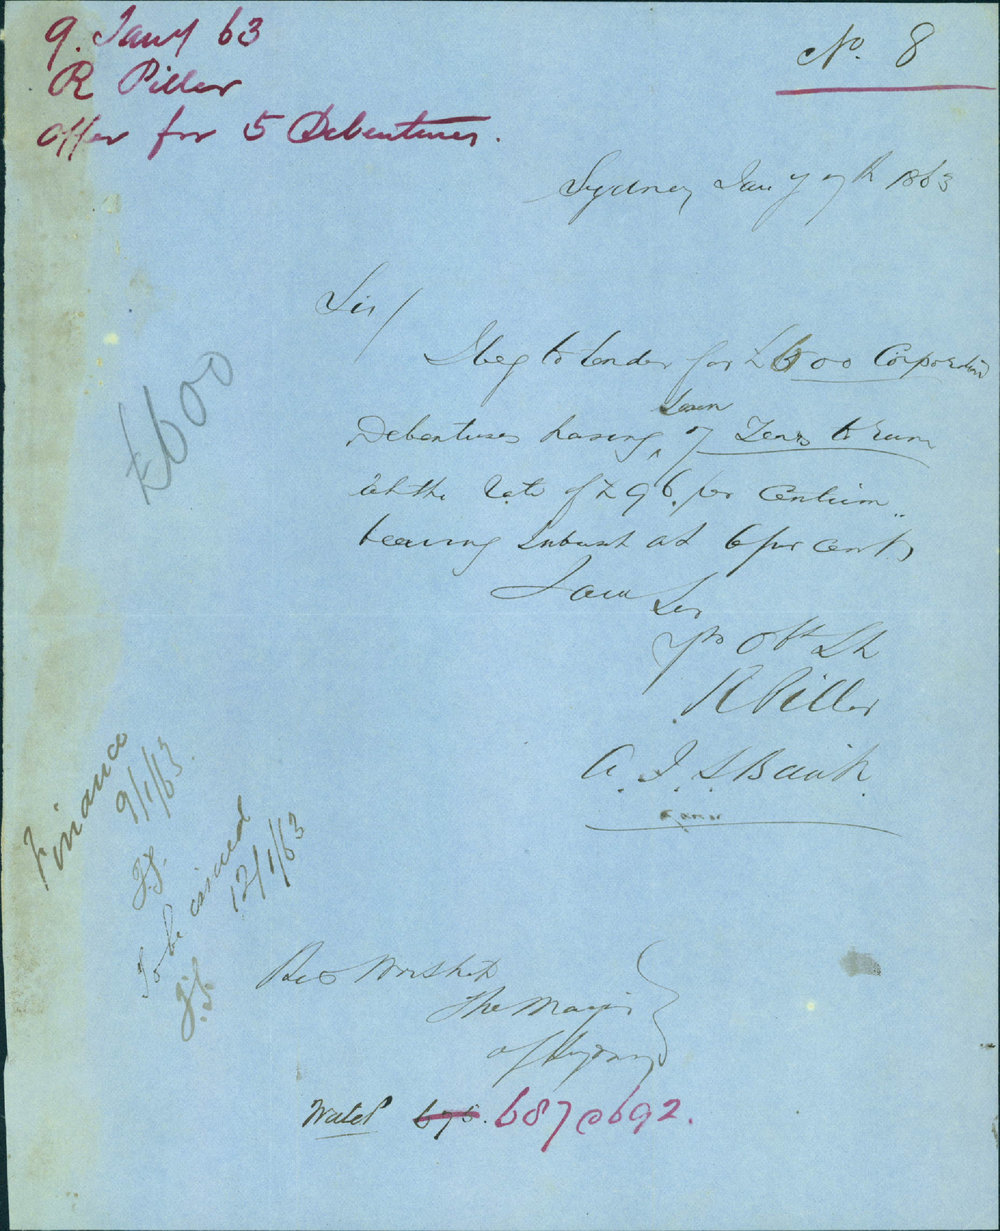 9. Jany 63
R Piller
offer for 5 Debentures.
No. 8
Sydney Jany 9th 1863
Sir/
I beg to tender for £600 Corporation
Debentures having Seven of Years to run
at the rate of £96. per Centum
bearing Interest at 6 per cent
I am Sir
yr Obt St
R Piller
A. J. S Bank.
£600
Finance
9/1/63.
To be issued
12/1/63
His Worship
The Mayor
of Sydney
Water 678. 687@692.